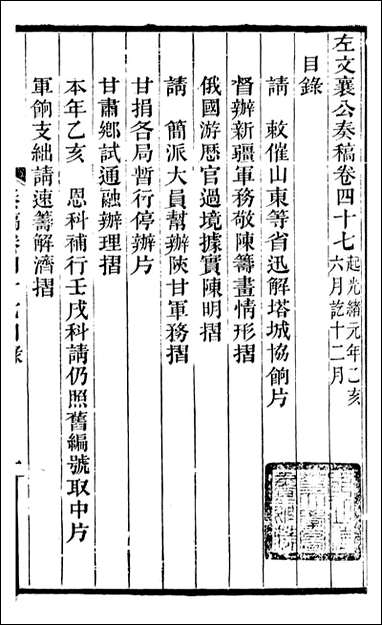 左文襄公奏稿卷四十七起光緒元年乙亥六月訖十二月
目錄
請　敕催山東等省迅解塔城協餉片
督辦新疆軍務敬陳籌畫情形摺
俄國游歷官過境據實陳明摺
請　簡派大員幫辦陝甘軍務摺
甘捐各局暫行停辦片
甘肅鄉試通融辦理摺
本年乙亥　恩科補行壬戌科請仍照舊編號取中片
軍餉支絀請速籌解濟摺